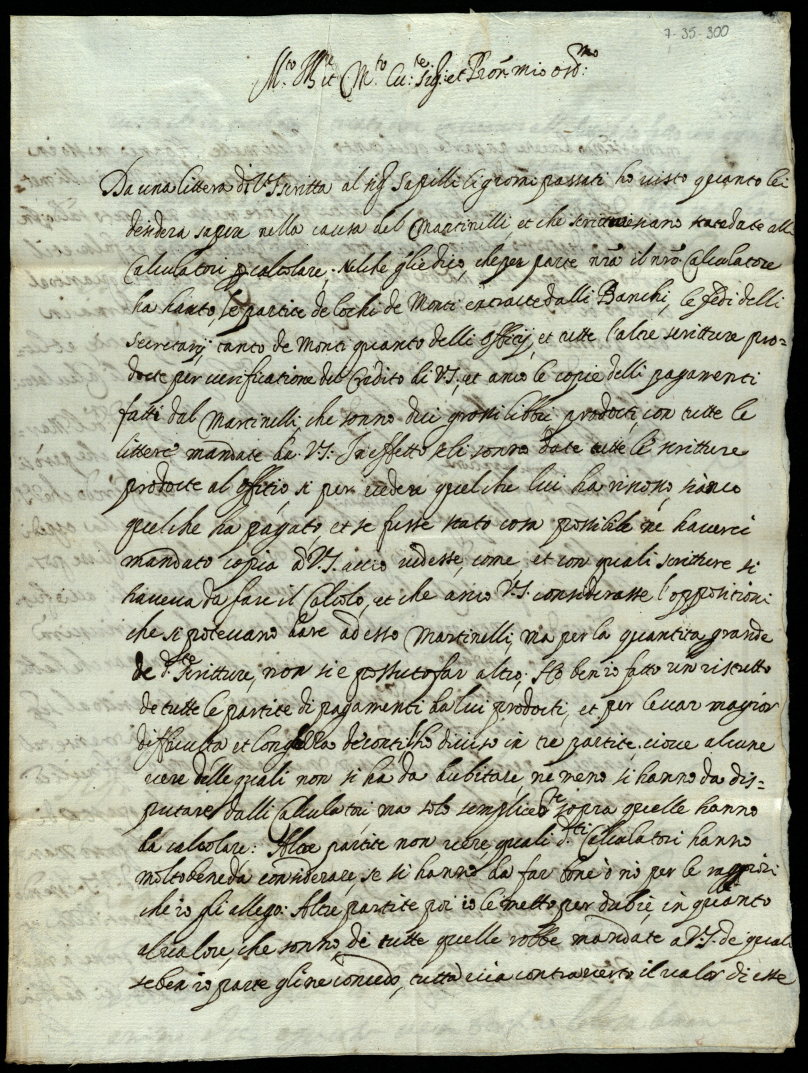 7-35-300
M.to Ill.re et M.to Cu.: Sig.: et Pron mio oss.mo:
Da una littera di V.S. scritta al sig.r Sapilli li giorni passati ho visto quanto lei
desidera sapere nella causa del Martinelli, et che scritture siano state date alli
Calculatori p calcolare; Nel che gli dico, che per parte nra il nro Calculatore
ha havuto, le partite de lochi de Monti extracte dalli Banchi, le fedi delli
secretarij tanto de Monti quanto delli officij, et tutte l'altre scritture pro-
docte per verificatione del credito di V.S., et anco le copie delli pagamenti
fatti dal Martinelli, che sonno dui grossi libbri prodocti, con tutte le
littere mandate da V.S. In effetto se li sonno date tutte le scritture
prodocte al offitio si per vedere quel che lui ha riscosso, si anco
quel che ha pagato, et se fusse stato cosa possibile ne haverei
mandato copia a V.S. accio vedesse, come, et con quali scritture si
haveva da fare il Calcolo, et che anco V.S. considerasse l'oppositioni
che si potevano dare ad esso Martinelli, ma per la quantita grande
de d.te scritture, non si e possuto far altro; Ho ben io fatto un ristretto
de tutte le partite di pagamenti da lui prodocti, et per levar magior
difficulta et longhezza de conti l'ho diviso in tre partite, cioue alcune
vere delle quali non si ha da dubitare, ne meno si hanno da dis-
putare dalli Calculatori ma solo semplicem.te sopra quelle hanno
da calcolare: Altre partite non vere, quali d.tti Calculatori hanno
molto bene da considerare, se si hanno da far bone ò nò per le raggioni
che io gli allego: Altre partite poi io le metto per dubie in quanto
al valore, che sonno de tutte quelle robbe mandate a V.S. de quali
se ben io parte gli ne concedo, tutta via controverto il valor di esse